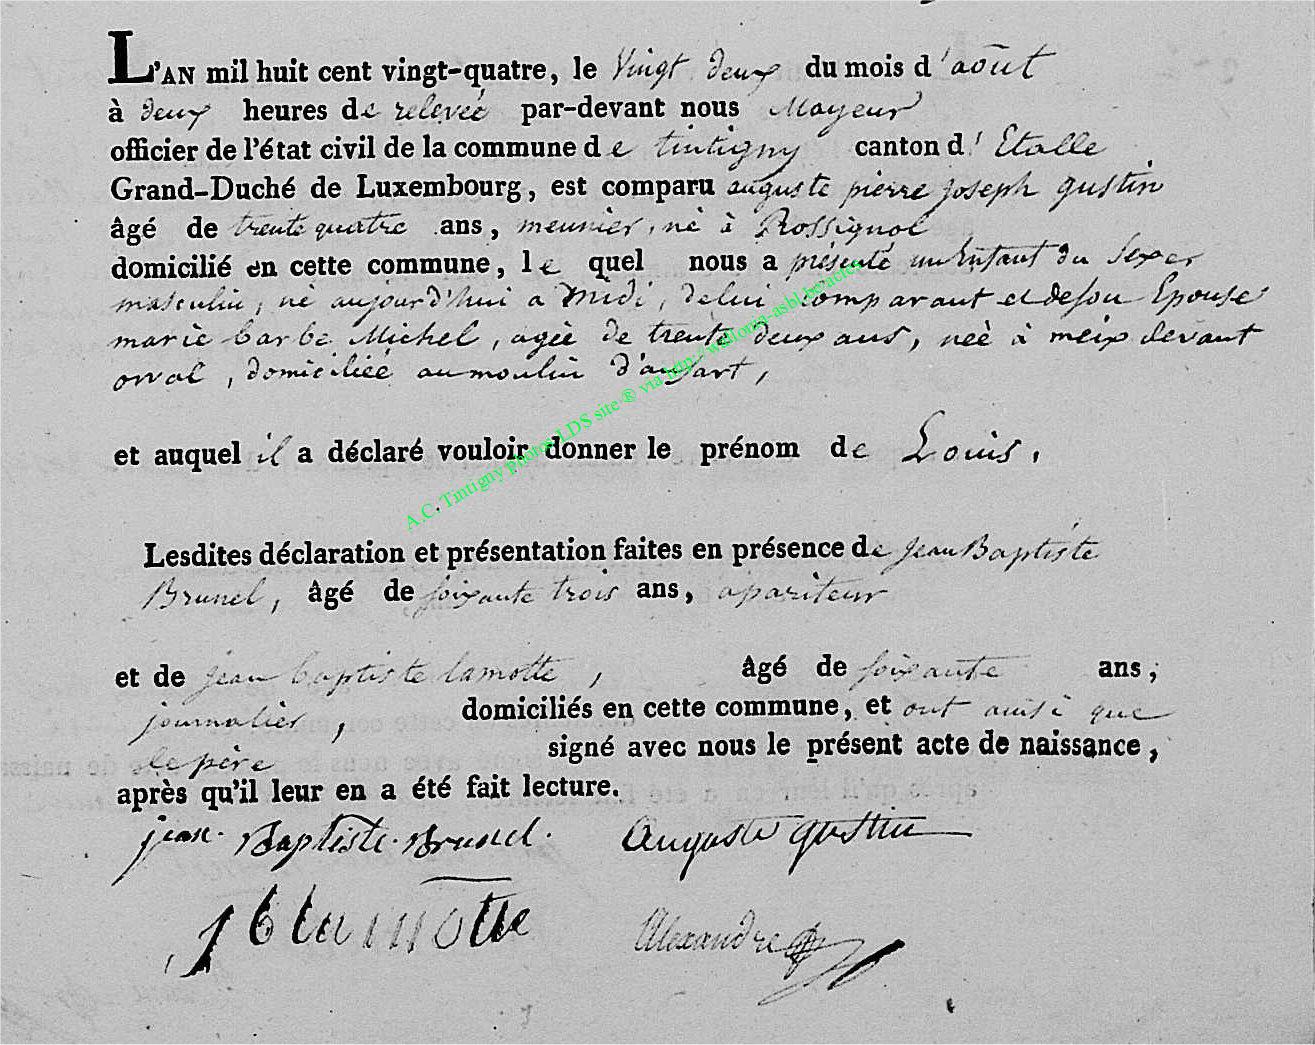 L'AN mil huit cent vingt-quatre, le Vingt deux du mois d'août
à deux heures de relevée par-devant nous Mayeur
officier de l'état civil de la commune de tintigny canton d'Etalle
Grand-Duché de Luxembourg, est comparu auguste pierre joseph gustin
âgé de trente quatre ans, meunier, né à Rossignol
domicilié en cette commune, le quel nous a présenté un Enfant du Sexe
masculin, né aujourd'hui a Midi, de lui comparant et de son Epouse
marie barbe Michel, agée de trente deux ans, neè à meix devant
orval, domiciliée au moulin
et auquel il a déclaré vouloir donner le prénom de Louis.
Lesdites déclaration et présentation faites en présence de jean Baptiste
Brunel, âgé de soixante trois ans, apariteur
et de jean baptiste lamotte, âgé de soixante ans;
journalier, domiciliés en cette commune, et ont ainsi que
le père signé avec nous le présent acte de naissance,
après qu'il leur en a été fait lecture.
jean Baptiste Brunel. Auguste gustin
J b lamotte Alexandre
A.C. Tintigny photos LDS site ® via http://wallonia-asbl.be/actes